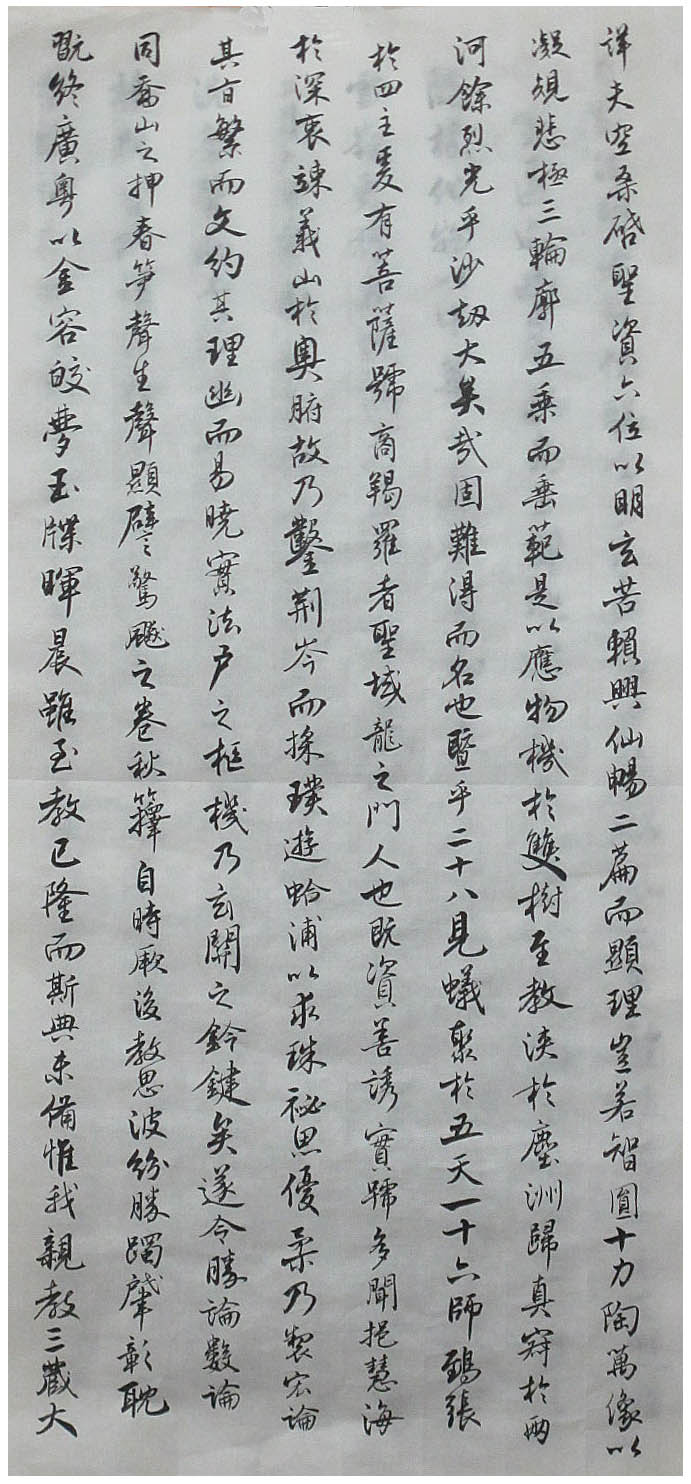 詳夫空桑啓聖資六位以明玄苦賴興仙暢二篇而顯理豈若智圓十力陶萬像以
凝規悲極三輪廓五乘而垂範是以應物機於雙樹至教浹於塵洲歸真寂於兩
河餘烈光乎沙劫大矣哉固難得而名也暨乎二十八見蟻聚於五天一十六師鵄張
於四主爰有菩薩號商羯羅者聖域龍之門人也既資善誘實號多聞挹慧海
於深衷竦義山於奧腑故乃鑿荊岑而採璞遊蛤浦以求珠祕思優柔乃製宏論
其旨繁而文約其理幽而易曉實法戶之樞機乃玄關之鈐鍵矣遂令勝論數論
同喬山之押春笋聲生聲顯譬驚飈之卷秋籜自時厥後教思波紛勝躅肇彰耽
翫終廣粵以金容皎夢玉牒暉晨雖至教已隆而斯典未備惟我親教三藏大